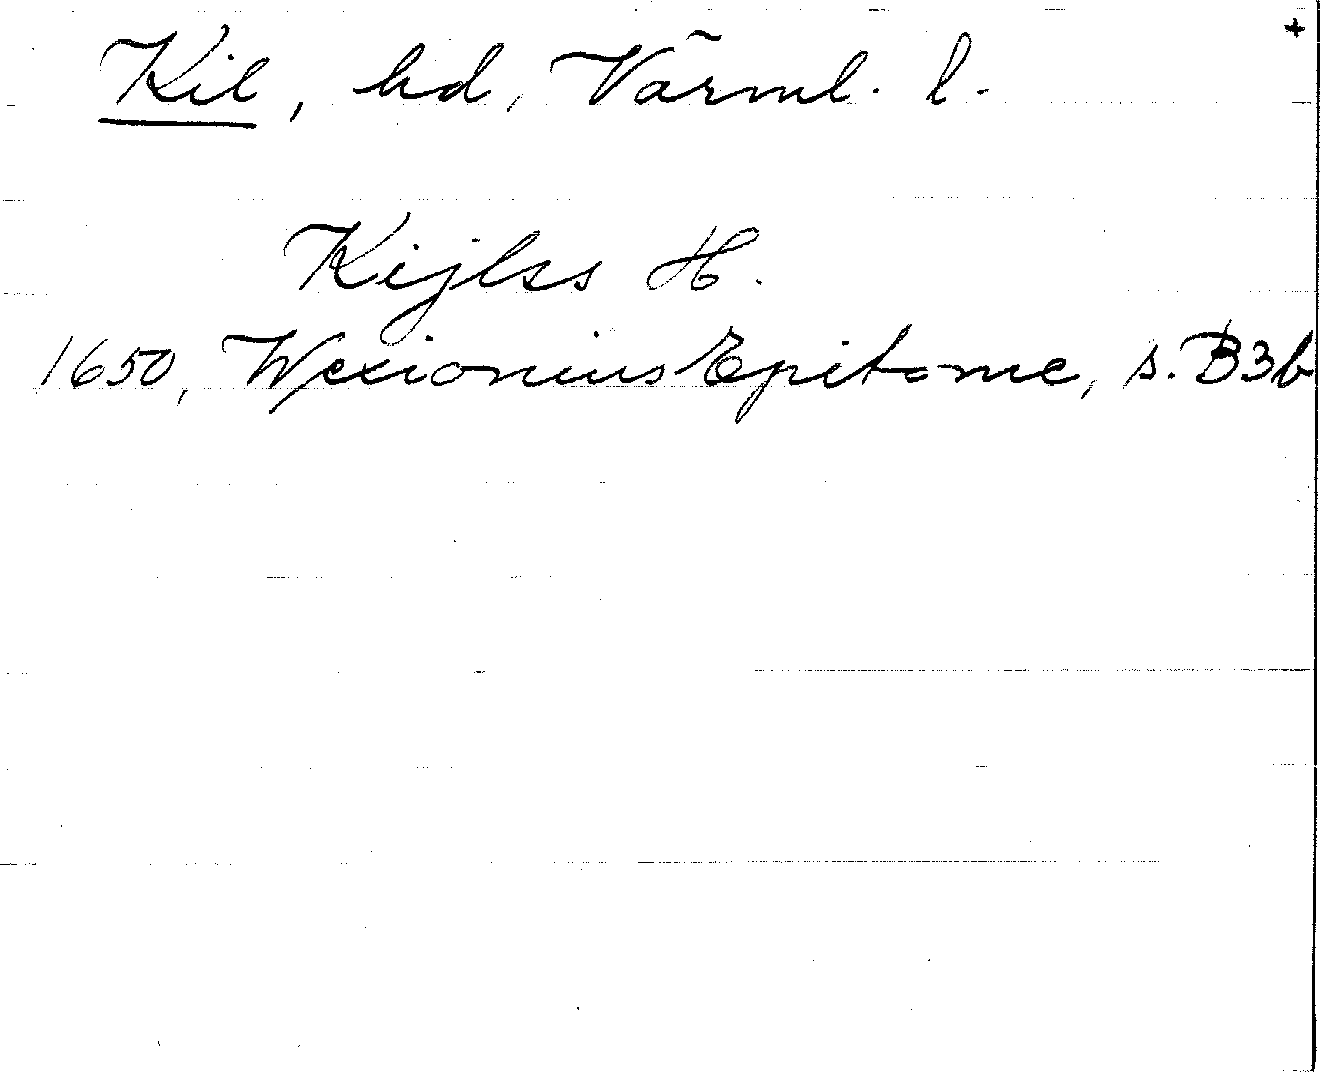 Kil, hd, Värml. l.
Kijlss H.
1650, Wexionius Epitome, s. B3b